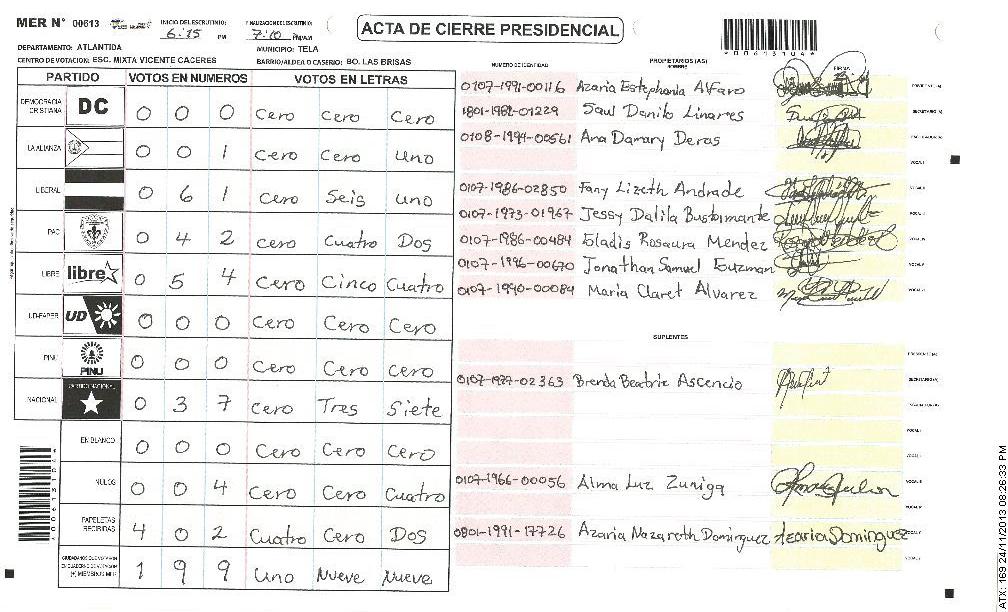 MER N° 00613
INICIO DEL ESCRUTINIO: 6:15 PM
FINALIZACION DEL ESCRUTINIO: 7:10 PM/AM
ACTA DE CIERRE PRESIDENCIAL
*00613104*
DEPARTAMENTO: ATLANTIDA
MUNICIPIO: TELA
CENTRO DE VOTACION: ESC. MIXTA VICENTE CACERES
BARRIO/ALDEA O CASERIO: BO. LAS BRISAS
PARTIDO VOTOS EN NUMEROS VOTOS EN LETRAS
DEMOCRACIA CRISTIANA DC 0 0 0 Cero Cero Cero
LA ALIANZA 0 0 1 Cero Cero Uno
LIBERAL 0 6 1 Cero Seis Uno
PAC 0 4 2 Cero Cuatro Dos
LIBRE libre 0 5 4 Cero Cinco Cuatro
UD-FAPER UD 0 0 0 Cero Cero Cero
PINU PINU 0 0 0 Cero Cero Cero
NACIONAL PARTIDO NACIONAL 0 3 7 Cero Tres Siete
EN BLANCO 0 0 0 Cero Cero Cero
NULOS 0 0 4 Cero Cero Cuatro
PAPELETAS RECIBIDAS 4 0 2 Cuatro Cero Dos
CIUDADANOS QUE VOTARON EN CUADERNO DE VOTACION (+) MIEMBROS MER 1 9 9 Uno Nueve Nueve
NUMERO DE IDENTIDAD PROPIETARIOS (AS) NOMBRE FIRMA
0107-1991-00116 Azaria Estephania Alfaro PRESIDENTE (A)
1801-1982-01229 Saul Danilo Linares SECRETARIO (A)
0108-1994-00561 Ana Damary Deras ESCRUTADOR (A)
VOCAL I
0107-1986-02850 Fany Lizeth Andrade
0107-1973-01967 Jessy Dalila Bustamante
0107-1986-00484 Gladis Rosaura Mendez
0107-1996-00670 Jonathan Samuel Guzman
0107-1990-00084 Maria Claret Alvarez
SUPLENTES
PRESIDENTE (A)
0107-1987-02363 Brenda Beatriz Ascencio SECRETARIO (A)
0107-1966-00056 Alma Luz Zuniga
0801-1991-17726 Azaria Nazareth Dominguez Azaria Dominguez
ATX: 169 24/11/2013 08:26:33 PM